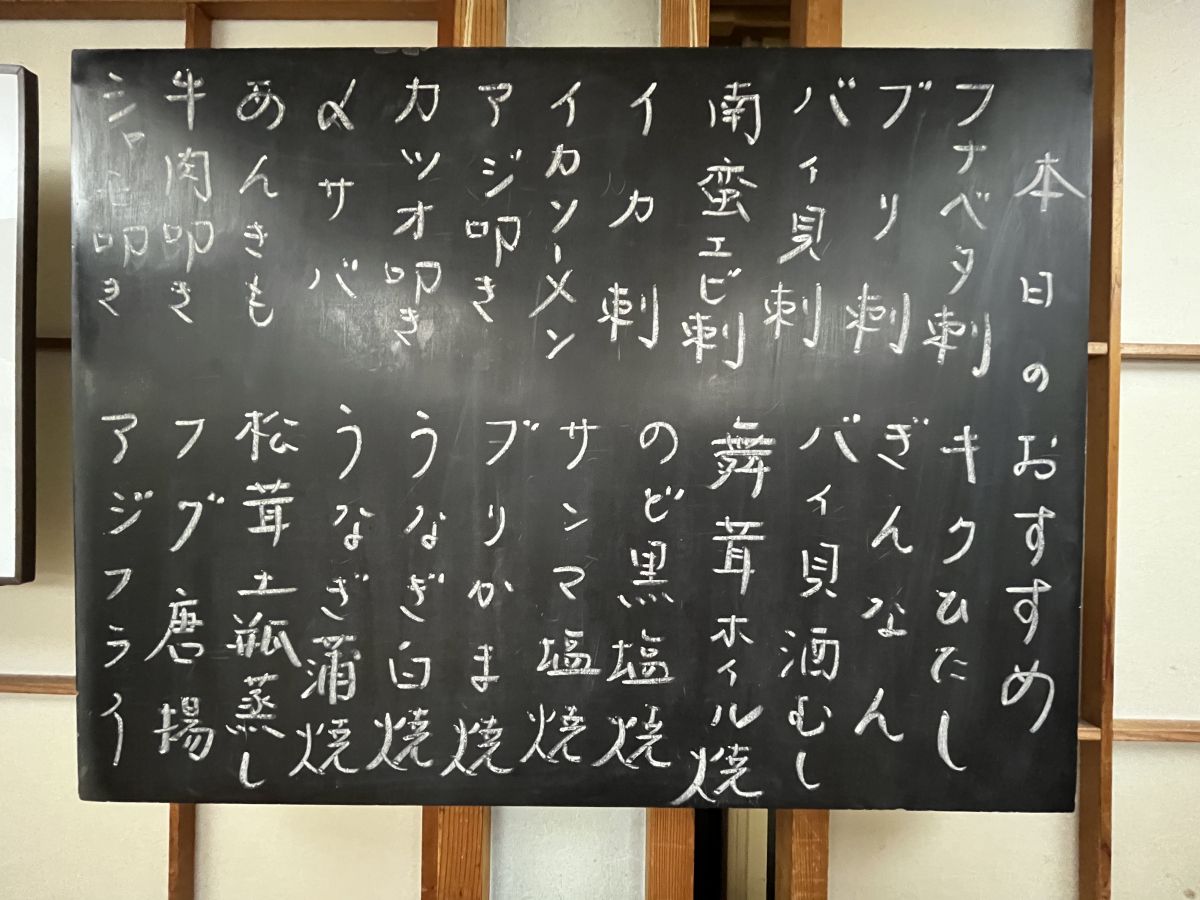 本日のおすすめ
フナベタ刺
ブリ刺
バィ貝刺
南蛮エビ刺
イカ刺
イカソーメン
アジ叩き
カツオ叩き
〆サバ
あんきも
牛肉叩き
シャモ叩き
キクひたし
ぎんなん
バィ貝酒むし
舞茸ホィル焼
のど黒塩焼
サンマ塩焼
ブリかま焼
うなぎ白焼
うなぎ蒲焼
松茸土瓶蒸し
フグ唐揚
アジフライ